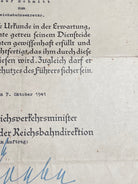 Reichsbahnsekretär.
ie Urkunde in der Erwartung,
ste getreu seinem Diensteide
ten gewissenhaft erfüllt und
echtfertigt, das ihm durch diese
iesen wird. Zugleich darf er
chutzes des Führers sicher sein.
7. Oktober 1941
eichsverkehrsminister
der Reichsbahndirektion